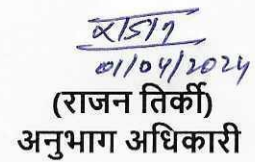 राजन
01/04/2024
(राजन तिर्की)
अनुभाग अधिकारी